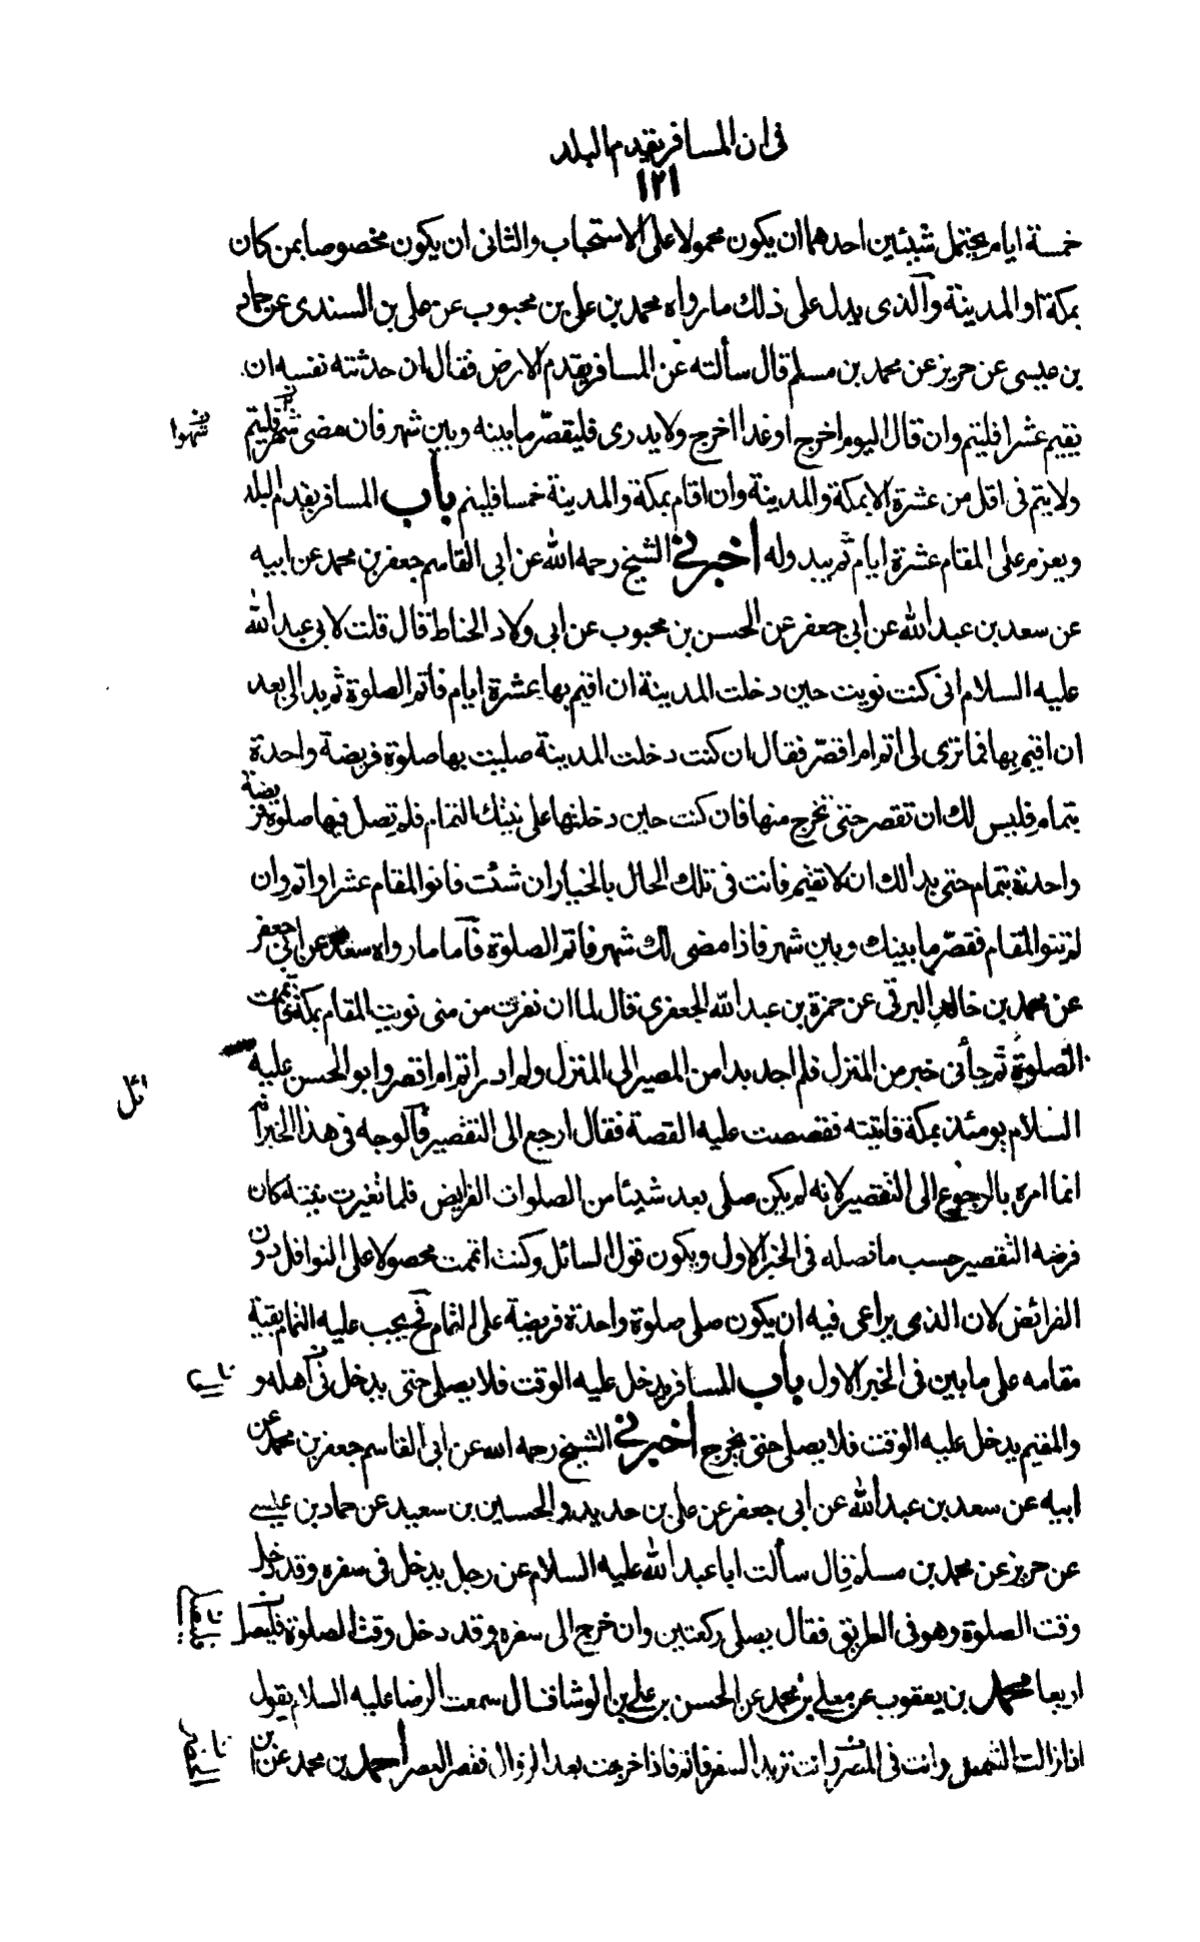 فى ان المسافر يقدم البلد
١٢١
خمسة ايام يحتمل شيئين احدهما ان يكون محمولا على الاستحباب والثانى ان يكون مخصوصا بمن كان
بمكة او المدينة والذى يدل على ذلك ما رواه محمد بن على بن محبوب عن على بن السندى عن حماد
بن عيسى عن حريز عن محمد بن مسلم قال سألته عن المسافر يقدم الارض فقال ان حدثته نفسه ان
يقيم عشرا فليتم وان قال اليوم اخرج او غدا اخرج ولا يدرى فليقصّر ما بينه وبين شهر فان مضى شهر فليتم
شهرا
ولا يتم فى اقل من عشرة الا بمكة والمدينة وان اقام بمكة والمدينة خمسا فليتم باب المسافر يقدم البلد
ويعزم على المقام عشرة ايام ثم يبدو له اخبرنى الشيخ رحمه الله عن ابى القاسم جعفر بن محمد عن ابيه
عن سعد بن عبد الله عن ابى جعفر عن الحسن بن محبوب عن ابى ولاد الحناط قال قلت لابى عبد الله
عليه السلام انى كنت نويت حين دخلت المدينة ان اقيم بها عشرة ايام فاتم الصلوة ثم بدا لى بعد
ان اقيم بها فما ترى لى اتم ام اقصّر فقال ان كنت دخلت المدينة صليت بها صلوة فريضة واحدة
بتمام فليس لك ان تقصر حتى تخرج منها فان كنت حين دخلتها على نيتك التمام فلم تصل فيها صلوة فريضة
واحدة بتمام حتى بدا لك ان لا تقيم فانت فى تلك الحال بالخيار ان شئت فانو المقام عشرا واتم وان
لم تنو المقام فقصّر ما بينك وبين شهر فاذا مضى لك شهر فاتم الصلوة فاما ما رواه سعد عن ابى جعفر
عن محمد بن خالد البرقى عن حمزة بن عبد الله الجعفرى قال لما ان نفرت من منى نويت المقام بمكة فاتممت
الصلوة ثم جأنى خبر من المنزل فلم اجد بدا من المصير الى المنزل ولم ادر اتم ام اقصر وابو الحسن عليه
السلام يومئذ بمكة فاتيته فقصصت عليه القصة فقال ارجع الى التقصير فالوجه فى هذا الخبر انه
انما امره بالرجوع الى التقصير لانه لم يكن صلى بعد شيئا من الصلوات الفرايض فلما تغيرت نيته كان
فرضه التقصير حسب ما فصله فى الخبر الاول ويكون قول السائل وكنت اتممت محصولا على النوافل دون
الفرائض لان الذى يراعى فيه ان يكون صلى صلوة واحدة فريضة على التمام فح يجب عليه التمام بقية
مقامه على ما بين فى الخبر الاول باب المسافر يدخل عليه الوقت فلا يصلى حتى يدخل فى اهله و
والمقيم يدخل عليه الوقت فلا يصلى حتى يخرج اخبرنى الشيخ رحمه الله عن ابى القاسم جعفر بن محمد عن
ابيه عن سعد بن عبد الله عن ابى جعفر عن على بن حديد والحسين بن سعيد عن حماد بن عيسى
عن حريز عن محمد بن مسلم قال سألت ابا عبد الله عليه السلام عن رجل يدخل فى سفره وقد دخل
وقت الصلوة وهو فى الطريق فقال يصلى ركعتين وان خرج الى سفره وقد دخل وقت الصلوة فليصل
اربعا محمد بن يعقوب عن معلى بن محمد عن الحسن بن على بن الوشا قال سمعت الرضا عليه السلام يقول
اذا زالت الشمس وانت فى المصر وانت تريد السفر فاتم فاذا خرجت بعد الزوال فقصر العصر احمد بن محمد عن ابن